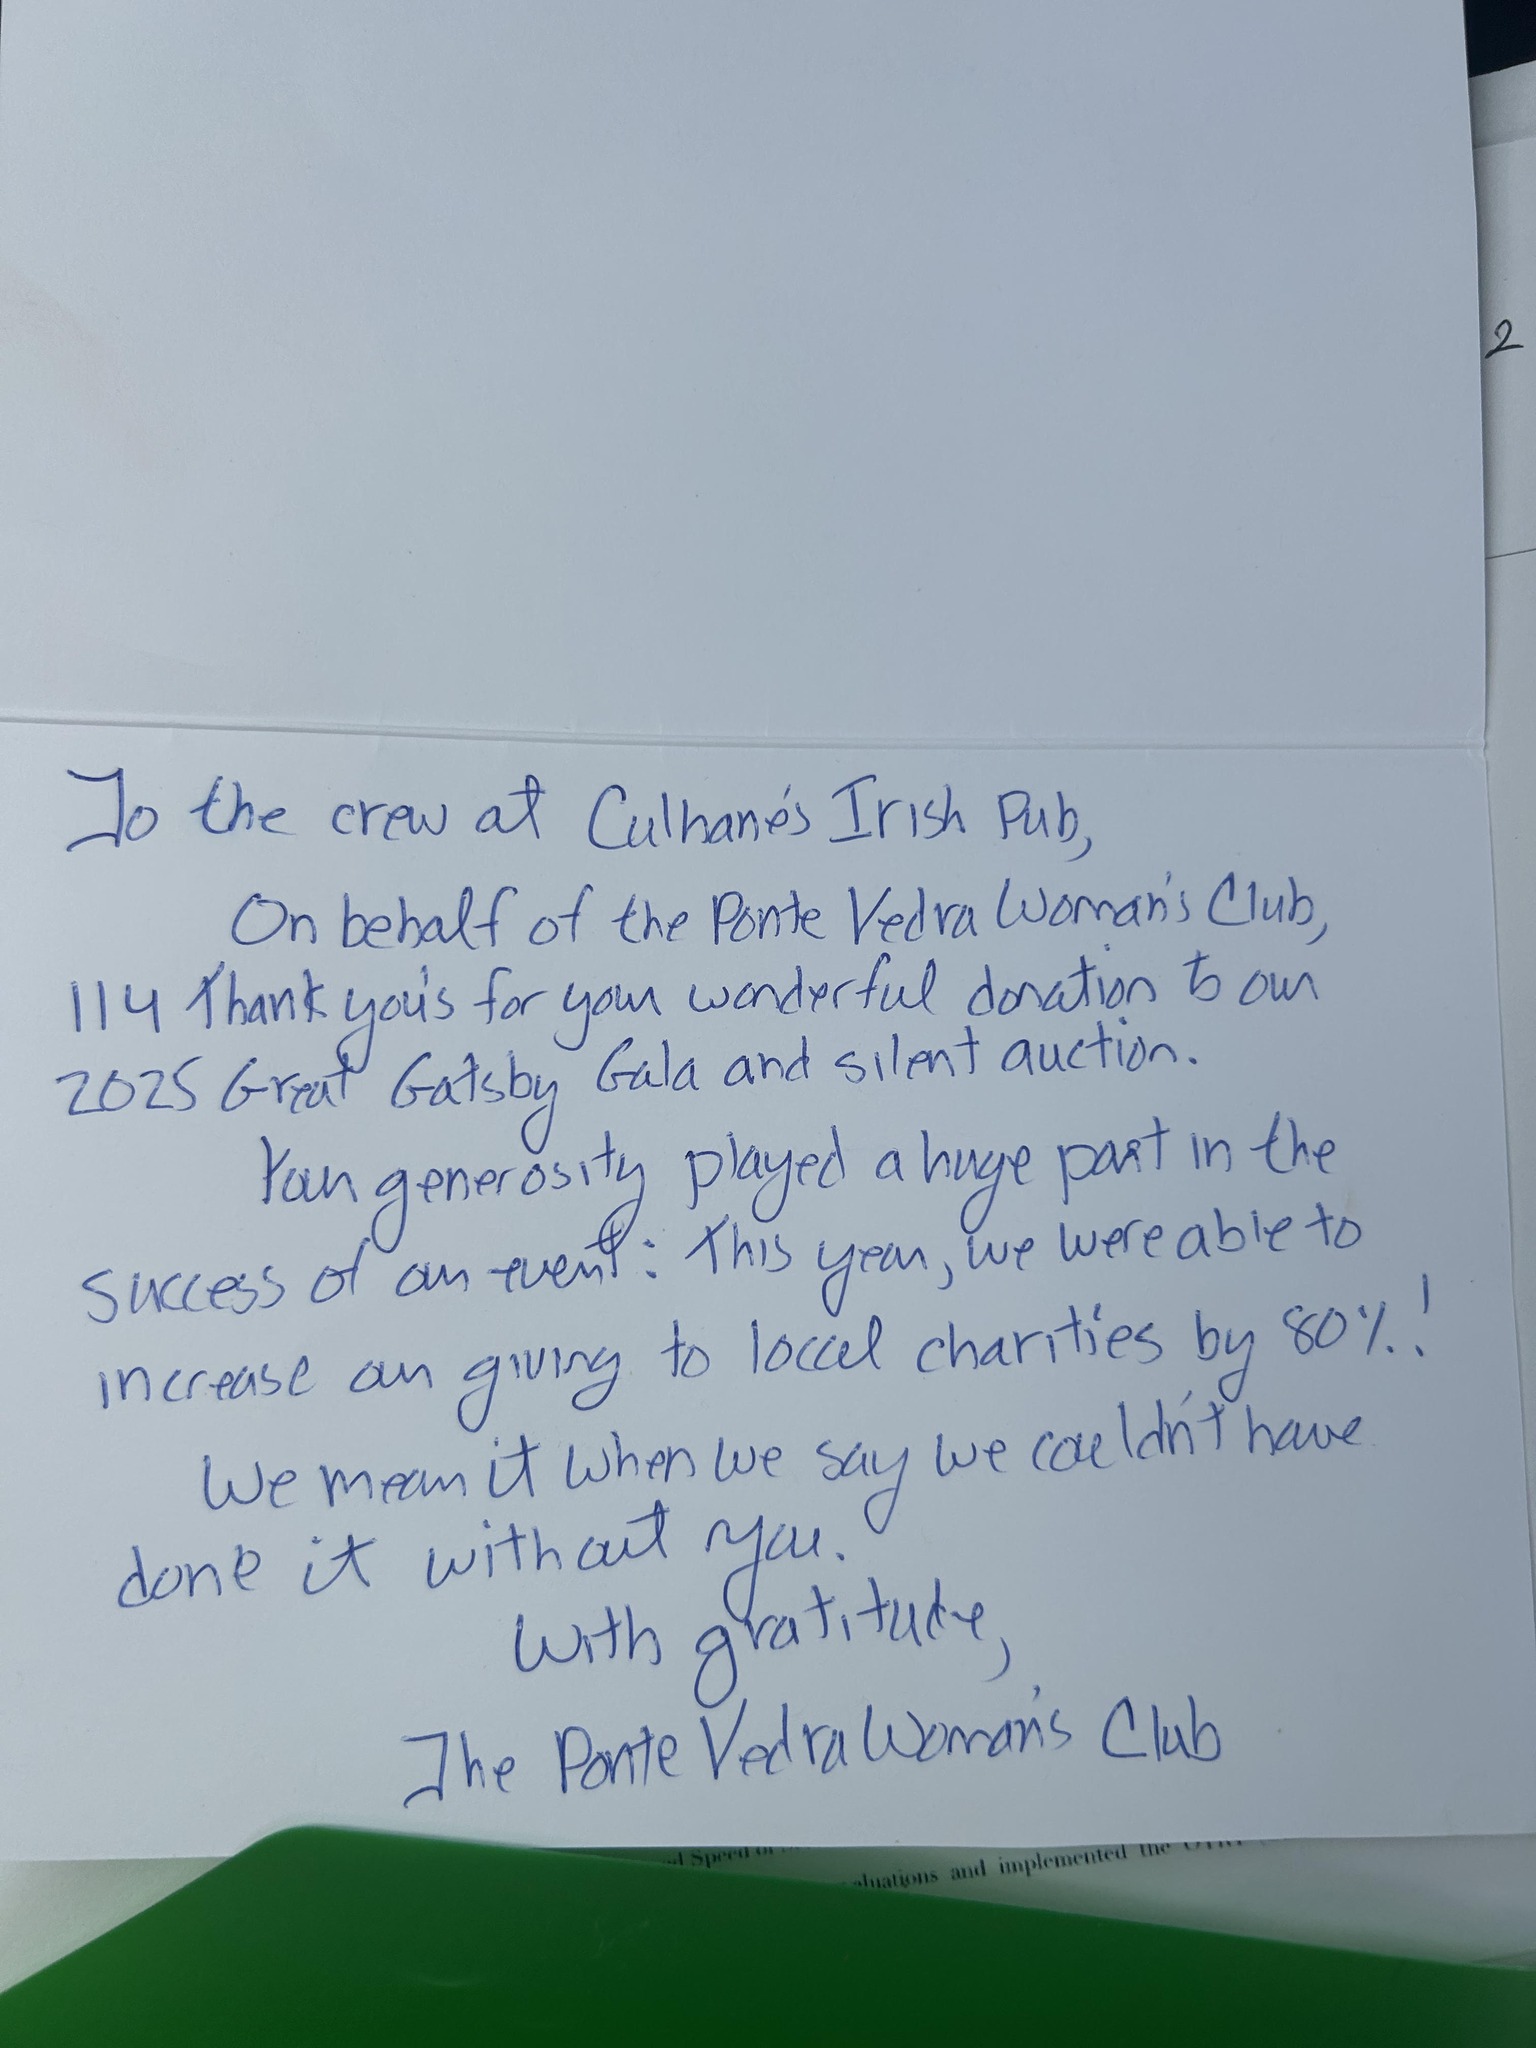 2
To the crew at Culhane's Irish Pub,
On behalf of the Ponte Vedra Woman's Club,
114 Thank you's for your wonderful donation to our
2025 Great Gatsby Gala and silent auction.
Your generosity played a huge part in the
success of our event: This year, we were able to
increase our giving to local charities by 80%!
We mean it when we say we couldn't have
done it without you.
With gratitude,
The Ponte Vedra Woman's Club
Speed of
and implemented the